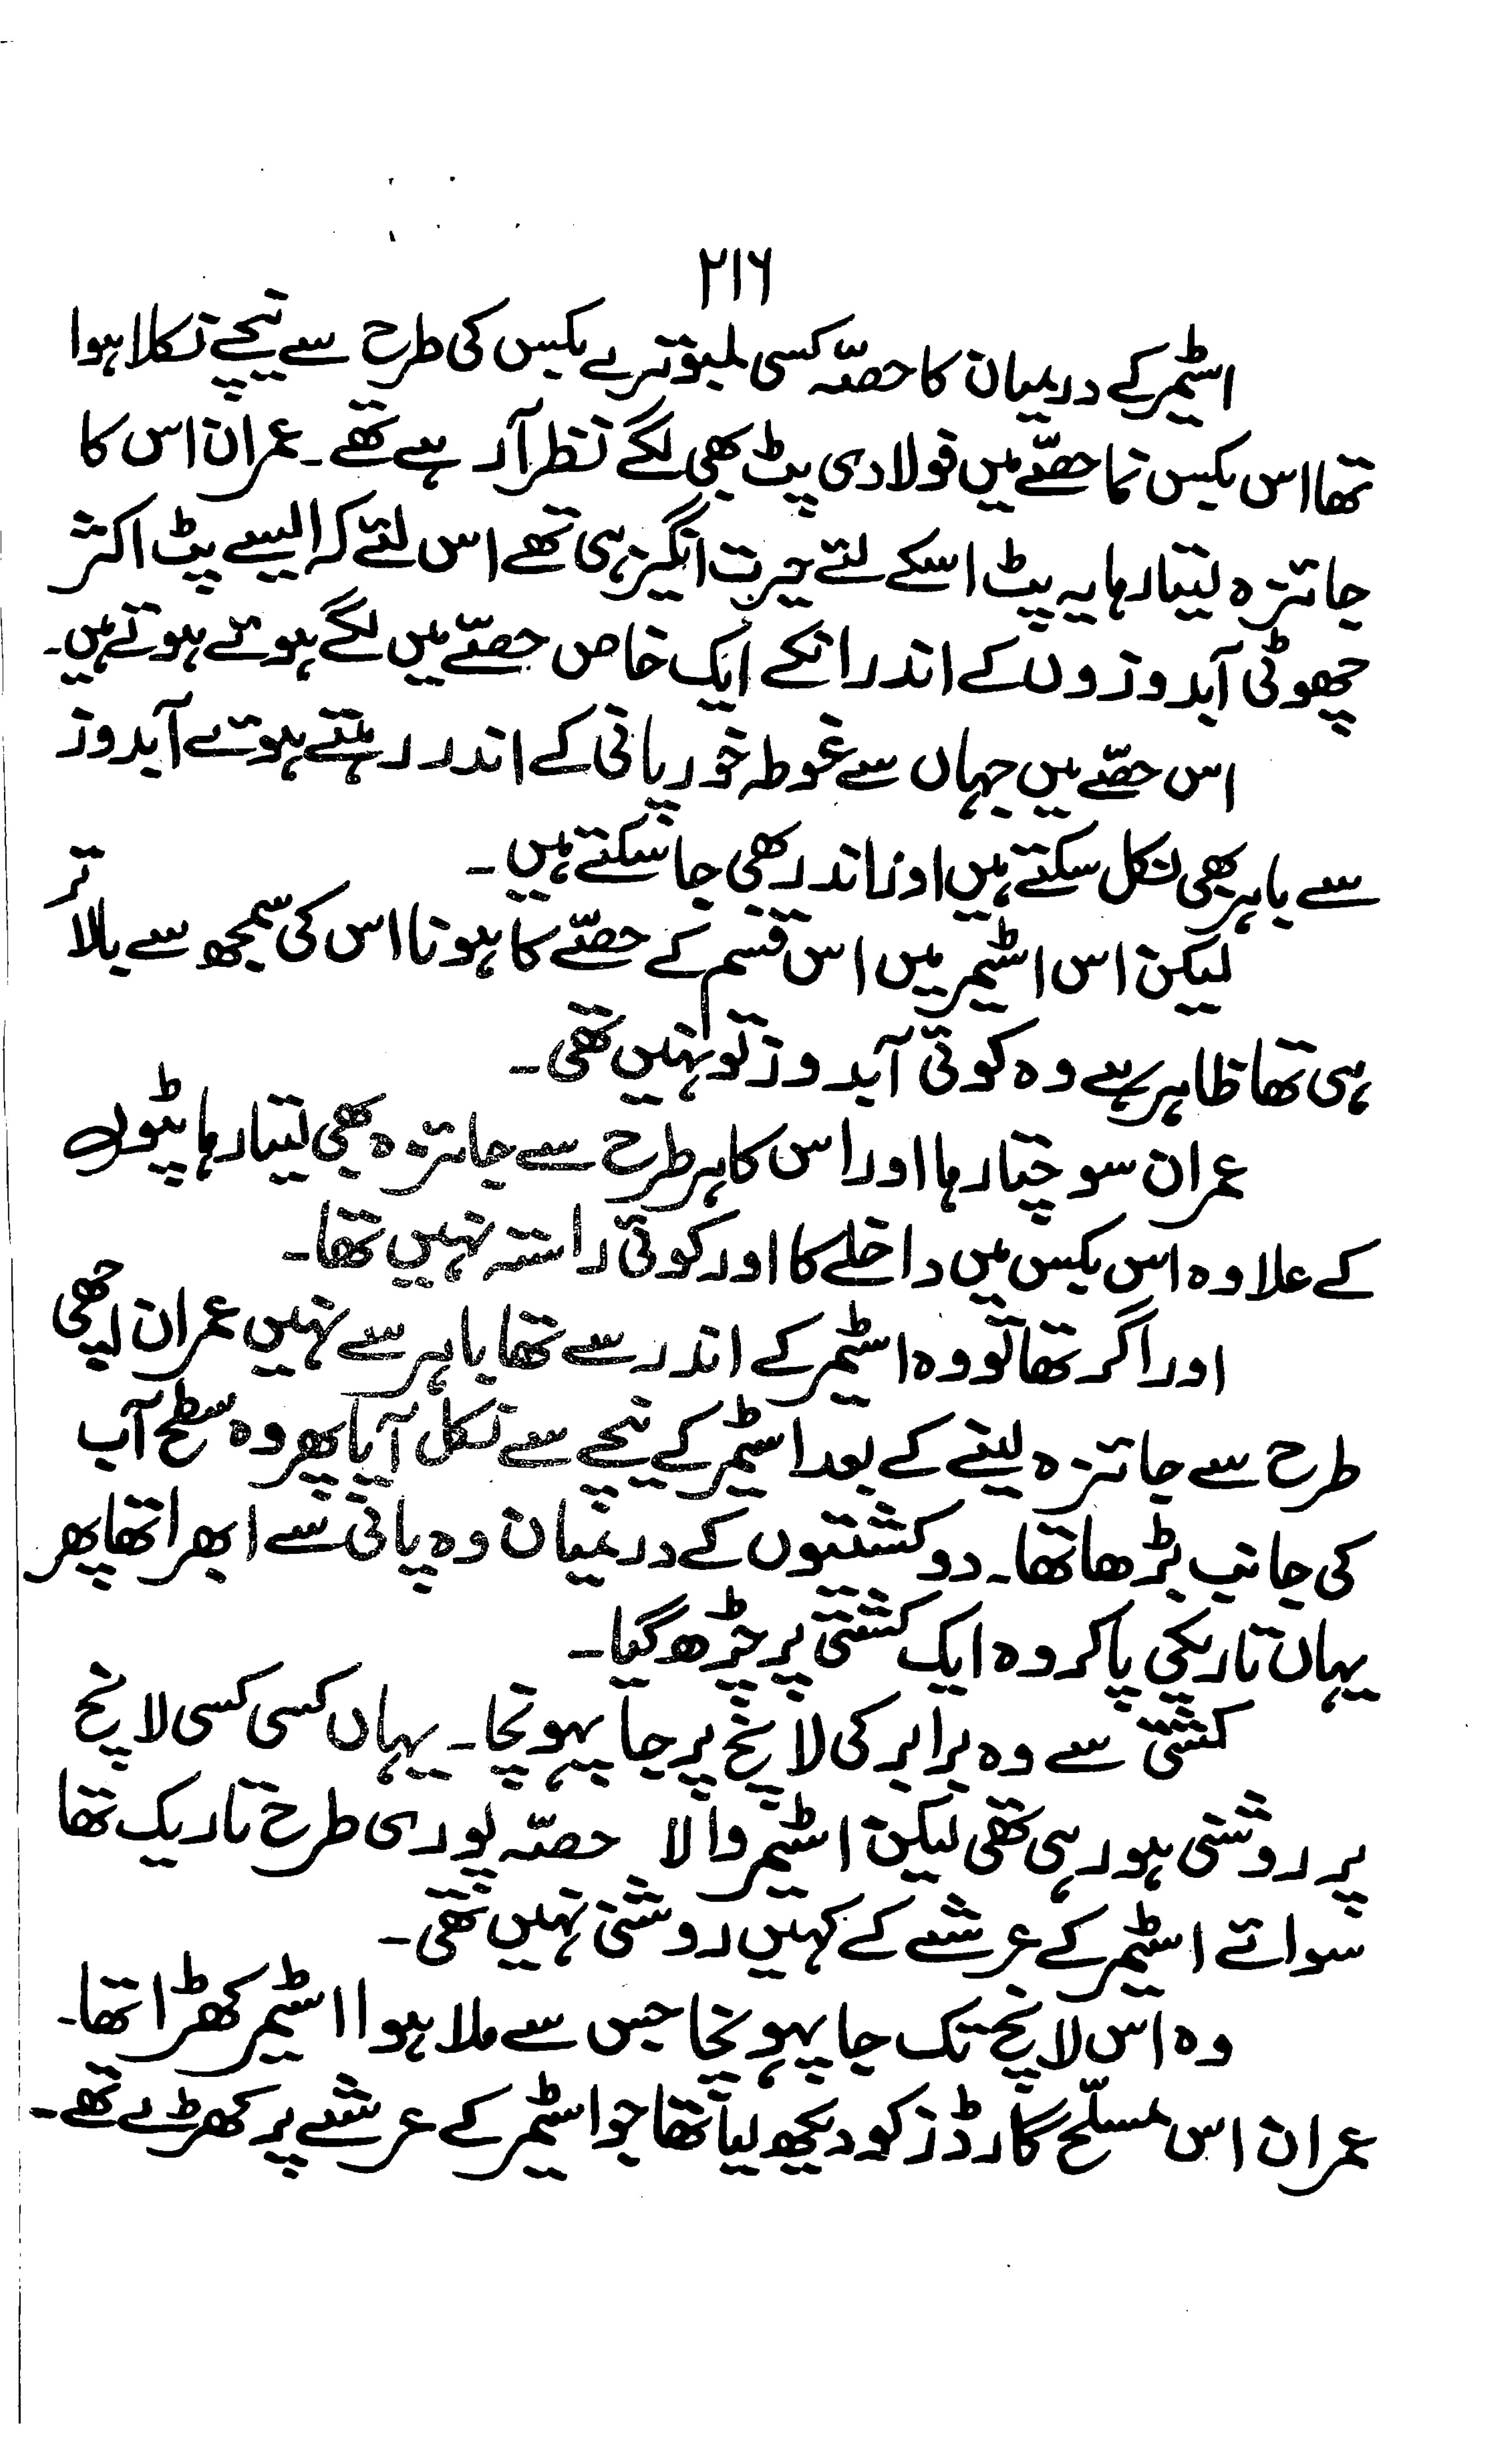 ۲۱۶
اسٹیمر کے درمیان کا حصّہ کسی لمبوترے بکس کی طرح سے نیچے نکلا ہوا
تھا اس بکس نما حصّے میں فولادی پٹ بھی لگے نظر آر ہے تھے۔ عمران اس کا
جائزہ لیتا رہا یہ پٹ اسکے لئے حیرت انگیز ہی تھے اس لئے کہ ایسے پٹ اکثر
چھوٹی آبدوزوں کے اندر انکے ایک خاص حصّے میں لگے ہوئے ہوتے ہیں۔
اس حصّے میں جہاں سے غوطہ خور پانی کے اندر رہتے ہوئے آبدوز
سے باہر بھی نکل سکتے ہیں اور اندر بھی جا سکتے ہیں۔
لیکن اس اسٹیمر میں اس قسم کے حصّے کا ہونا اس کی سمجھ سے بالا تر
ہی تھا ظاہر ہے وہ کوئی آبدوز تو نہیں تھی۔
عمران سوچتا رہا اور اس کا ہر طرح سے جائزہ بھی لیتا رہا پٹوں
کے علاوہ اس بکس میں داخلے کا اور کوئی راستہ نہیں تھا۔
اور اگر تھا تو وہ اسٹیمر کے اندر سے تھا باہر سے نہیں عمران اچھی
طرح سے جائزہ لینے کے بعد اسٹیمر کے نیچے سے نکل آیا پھر وہ سطح آب
کی جانب بڑھا تھا۔ دو کشتیوں کے درمیان وہ پانی سے ابھرا تھا پھر
یہاں تاریکی پا کر وہ ایک کشتی پر چڑھ گیا۔
کشتی سے وہ برابر کی لانچ پر جا پہونچا۔ یہاں کسی کسی لانچ
پر روشنی ہو رہی تھی لیکن اسٹیمر والا حصّہ پوری طرح تاریک تھا
سوائے اسٹیمر کے عرشے کے کہیں روشنی نہیں تھی۔
وہ اس لانچ تک جا پہونچا جس سے ملا ہوا اسٹیمر کھڑا تھا۔
عمران اس مسلّح گارڈز کو دیکھ لیا تھا جو اسٹیمر کے عرشے پر کھڑے تھے۔